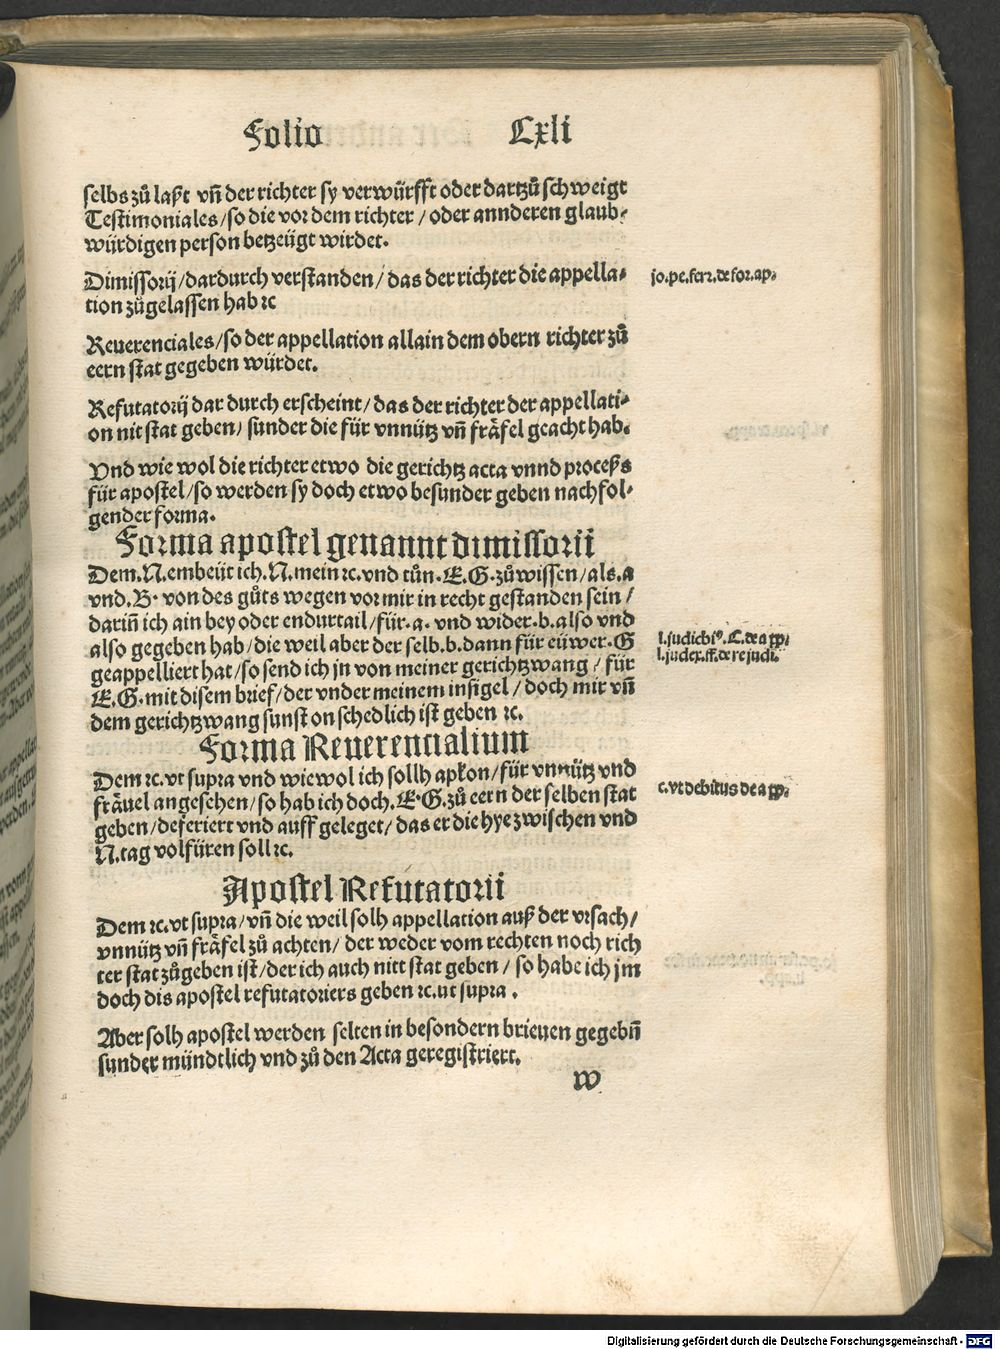 Folio Cxli
selbs zů laßt vñ der richter sy verwürfft oder dartzů schweigt
Testimoniales/so die vor dem richter/oder annderen glaub-
würdigen person betzeügt wirdet.
Dimissorij/dardurch verstanden/das der richter die appella-
tion zůgelassen hab ꝛc
jo.pe.ferr.de for.ap.
Reuerenciales/so der appellation allain dem obern richter zů
eern stat gegeben würdet.
Refutatorij dar durch erscheint/das der richter der appellati-
on nit stat geben/sunder die für vnnütz vñ fräfel geacht hab.
Vnd wie wol die richter etwo die gerichtz acta vnnd proceß
für apostel/so werden sy doch etwo besunder geben nachfol-
gender forma.
Forma apostel genannt dimissorii
Dem.N.embeüt ich.N.mein ꝛc.vnd tůn.E.G.zůwissen/als.a
vnd.B.von des gůts wegen vor mir in recht gestanden sein/
dariñ ich ain bey oder endurtail/für.a.vnd wider.b.also vnd
also gegeben hab/die weil aber der selb.b.dann für eüwer.G
geappelliert hat/so send ich jn von meiner gerichtzwang/für
E.G.mit disem brief/der vnder meinem insigel/doch mir vñ
dem gerichtzwang sunst on schedlich ist geben ꝛc.
l.judex.ff.de re judi.
Forma Reuerencialium
Dem ꝛc.vt supra vnd wiewol ich sollh apłon/für vnnütz vnd
fräuel angesehen/so hab ich doch.E.G.zů eern der selben stat
geben/deferiert vnd auff geleget/das er die hye zwischen vnd
N.tag volfüren soll ꝛc.
c.vt debitus de app.
Apostel Refutatorii
Dem ꝛc.vt supra/vñ die weil solh appellation auß der vrsach/
vnnütz vñ fräfel zů achten/der weder vom rechten noch rich
ter stat zůgeben ist/der ich auch nitt stat geben/so habe ich jm
doch dis apostel refutatoriers geben ꝛc.ut supra.
Aber solh apostel werden selten in besondern brieuen gegebñ
sunder mündtlich vnd zů den Acta geregistriert.
w
Digitalisierung gefördert durch die Deutsche Forschungsgemeinschaft - DFG